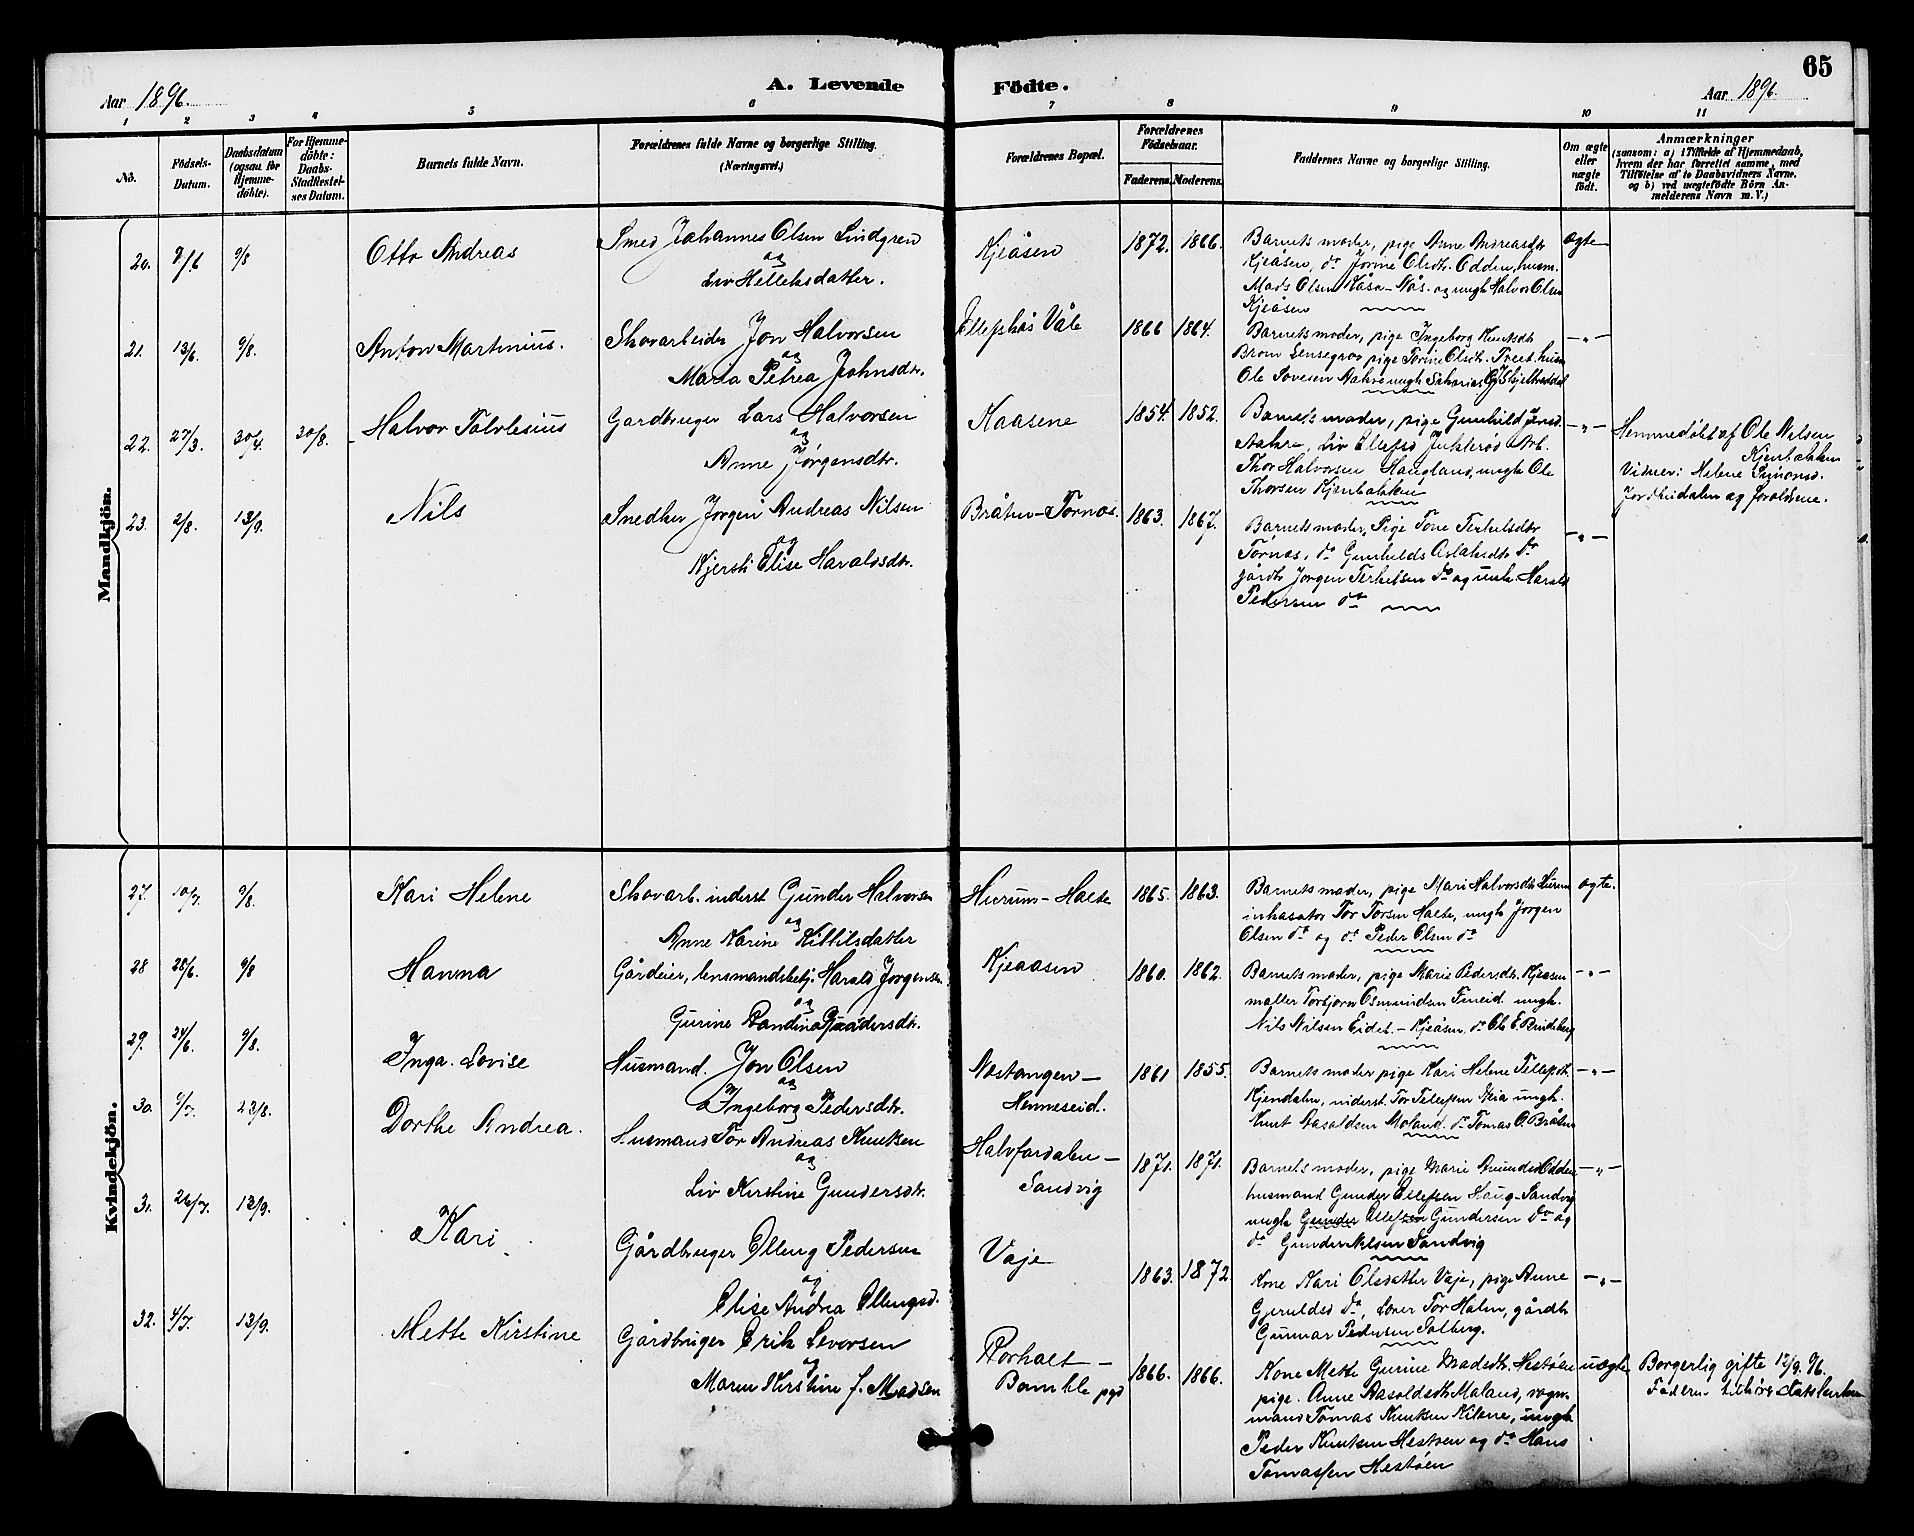 65
Aar 1896.
A. Levende Födte.
Aar 1896.
1 2 3 4 5 6 7 8 9 10 11
No.
Födsels-Datum.
Daabsdatum (ogsaa for Hjemmedöbte).
For Hjemmedöbte: Daabs-Stadfestelses Datum.
Barnets fulde Navn.
Forældrenes fulde Navne og borgerlige Stilling. (Næringsvei.)
Forældrenes Bopæl.
Forældrenes Födselsaar.
Faderens. Moderens.
Faddernes Navne og borgerlige Stilling.
Om ægte eller uægte födt.
Anmærkninger
(saasom: a) i Tilfælde af Hjemmedaab, hvem der har forrettet samme, med Tilföielse af to Daabsvidners Navne. og b) ved uægtefödte Börn Anmelderens Navn m. V.)
Mandkjön.
20. 9/8 Otto Andreas
Smed Johannes Olsen Lindgren
og
Liv Helleksdatter.
Kjeåsen 1872. 1866.
Barnets moder, pige Anne Andreasdtr
Kjeåsen, do Jorine Olsdtr. Odden, husm.
Mads Olsen Kåsa-Nås. og ungk Halvor Olsen
Kjeåsen
ægte
21. 13/6. 9/8. Anton Martinius.
Skovarbeider Jon Halvorsen
og
Maria Petrea Johnsdtr.
Våle 1866 1864.
Barnets moder, pige Ingeborg Knutsdtr
pige Torine Olsdtr.
Ole
-"-
22. 27/3 30/4 30/8. Halvor Talvlesius
Gardbruger Lars Halvorsen
og
Anne Jørgensdtr.
Kaasene 1854. 1852.
Barnets moder, pige Gunhild
Aakre, Liv Ellefsd
Thor Halvorsen Haugland, ungk Ole
Thorsen Kjenbakken
-"-
Hemmedöbt af Ole Nilsen
Kjenbakken
Vidner: Helene
og foreldrene.
23. 2/8. 13/9. Nils
Snedker Jorgen Andreas Nilsen
og
Kjersti Elise Havaldsdtr.
Bråten-Tornås. 1863. 1867.
Barnets moder, Pige Tone Terkelsdtr
Tornås, do Gunhilds Aslaksdtr do
gårdbr Jorgen Terkelsen do og unk. Harald
Pedersen do
-"-
Kvindekjön.
27. 10/7. 9/8. Kari Helene
Skovarb. inderst Gunder Halvorsen
og
Anne Karine Kittilsdatter
Hurum-Halte 1865. 1863.
Barnets moder, pige Mari Halvorsdtr Hurum
inkasator Tor Torsen Halte, ungk Jorgen
Olsen do og do Peder Olsen do
ægte.
28 28/6. 9/8 Hanna
Gårdeier, lensmandsbetj. Harald Jorgensen
og
Gurine Gundersdtr.
Kjeaasen 1860. 1862.
Barnets moder, pige Marie Pedersdtr. Kjeåsen
møller Torbjorn Osmundsen Fineid ungk.
Nils Nilsen Eidet-Kjeåsen. do Ole E.
-"-
29. 24/6 9/8. Inga. Lovise
Husmand. Jon Olsen
og
Ingeborg Pedersdtr.
Nostangen-
Henneseid.
1861 1855.
Barnets moder pige Kari Helene
Kjendalen, inderst. Tor Tellefsen ungk.
Knut Aasoldsen Moland. do Tomas O. Bråten
-"-
30. 9/7. 23/8. Dorthe Andrea.
Husmand Tor Andreas Knutsen
og
Liv Kirstine Gundersdtr.
Halvfardalen-
Sandvig
1871. 1871.
Barnets moder, pige Marie Amundsd Odden
husmand Gunder Ellefsen Haug-Sandvig
ungk Gunder Ellefsen Gundersen do og
do Gunder Nilsen Sandvig
-"-
31. 26/7. 13/9. Kari
Gårdbruger Elling Pedersen
og
Elise Andrea Ellingsd.
Vaje 1863. 1872
Kone Kari Olsdatter Vaje, pige Anne
Gjeruldsd do, Lærer Tor Halen, gårdbr
Gunnar Pedersen Solberg.
-"-
32. 4/7. 13/9. Mette Kirstine
Gårdbruger Erik Leversen
og
Maren Kirstine f. Madsen
Rorholt-
Bamble pgd
1866. 1866.
Kone Mette Gurine Madsdtr. Hestøen
pige. Anne Aasoldsdtr Moland, vogn-
mand Tomas Knutsen Kilene, ungk
Peder Knutsen Hestøen og do Hans
Tomassen Hestøen
uægte
Borgerlig gifte 12/9. 96.
Faderen tilhører Statskirken